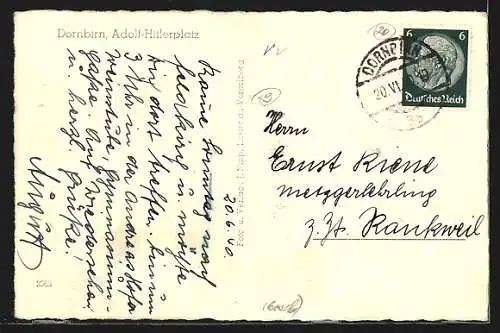 Dornbirn, Adolf-Hitlerplatz
Komme Sonntag nach
Feldkirch u. möchte
dich dort treffen. Bin um
3 Uhr in der Andreas Hofer
weinstube, Gymnasium
gasse. Auf Wiedersehen
u. herzl. Grüße!
August
20.6.40.
Foto u. Verlag
1005
6 6
Deutsches Reich
DORNBIRN
20.VI.
Herrn
Ernst Kiene
Metzgerlehrling
z. Zt. Rankweil
20